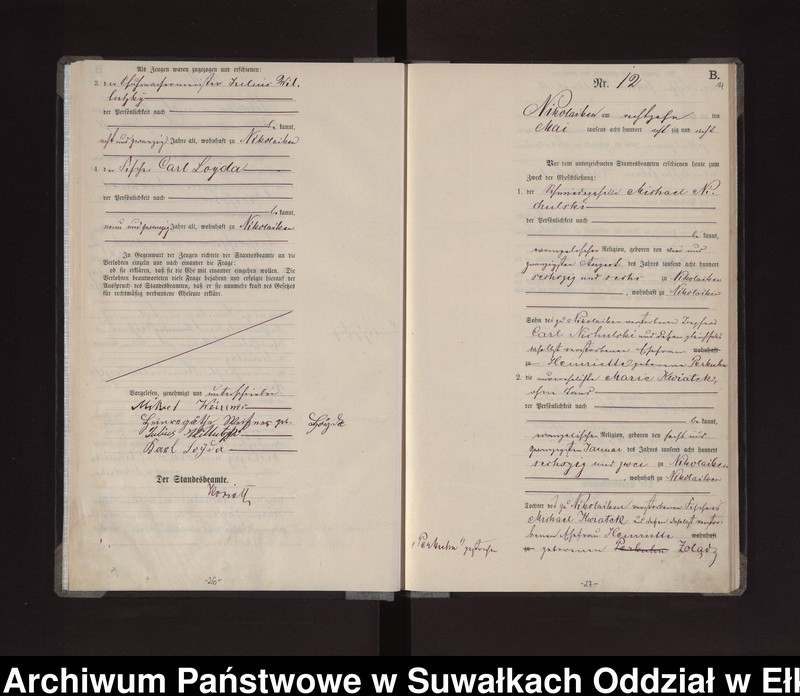 Als Zeugen waren zugezogen und erschienen:
3. der Schuhmachermeister Julius Wil-
lutzky
der Persönlichkeit nach
be kannt,
acht und zwanzig Jahre alt, wohnhaft zu Nikolaiken
4. der Fischer Carl Loyda
der Persönlichkeit nach
be kannt,
neun und zwanzig Jahre alt, wohnhaft zu Nikolaiken
In Gegenwart der Zeugen richtete der Standesbeamte an die
Verlobten einzeln und nach einander die Frage:
ob sie erklären, daß sie die Ehe mit einander eingehen wollen. Die
Verlobten beantworteten diese Frage bejahend und erfolgte hierauf der
Ausspruch des Standesbeamten, daß er sie nunmehr kraft des Gesetzes
für rechtmäßig verbundene Eheleute erkläre.
Vorgelesen, genehmigt und unterschrieben
geb. Loyda
Julius Willutzki
Karl Loyda
Der Standesbeamte.
-26-
B.
Nr. 12
Nikolaiken am achtzehn ten
Mai tausend acht hundert acht zig und acht
Vor dem unterzeichneten Standesbeamten erschienen heute zum
Zweck der Eheschließung:
1. der Schmiedegeselle Michael Ni-
chulski
der Persönlichkeit nach
be kannt,
evangelischer Religion, geboren den vier und
zwanzigsten August des Jahres tausend acht hundert
sechszig und sechs zu Nikolaiken
, wohnhaft zu Nikolaiken
Sohn des zu Nikolaiken verstorbenen
Carl Nichulski und dessen gleichfalls
daselbst verstorbenen Ehefrau wohnhaft
zu Henriette geborene Perkuhn
2. die unverehelichte Marie Kwiatek,
ohne Stand
der Persönlichkeit nach
be kannt,
evangelischer Religion, geboren den sechs und
zwanzigsten Januar des Jahres tausend acht hundert
sechszig und zwei zu Nikolaiken
, wohnhaft zu Nikolaiken
Tochter des zu Nikolaiken verstorbenen Fischers
Michael Kwiatek und dessen daselbst verstor-
benen Ehefrau Henriette wohnhaft
zu geborenen Perkuhn
"Perkuhn" gestrichen
-27-
Archiwum Państwowe w Suwałkach Oddział w Eł